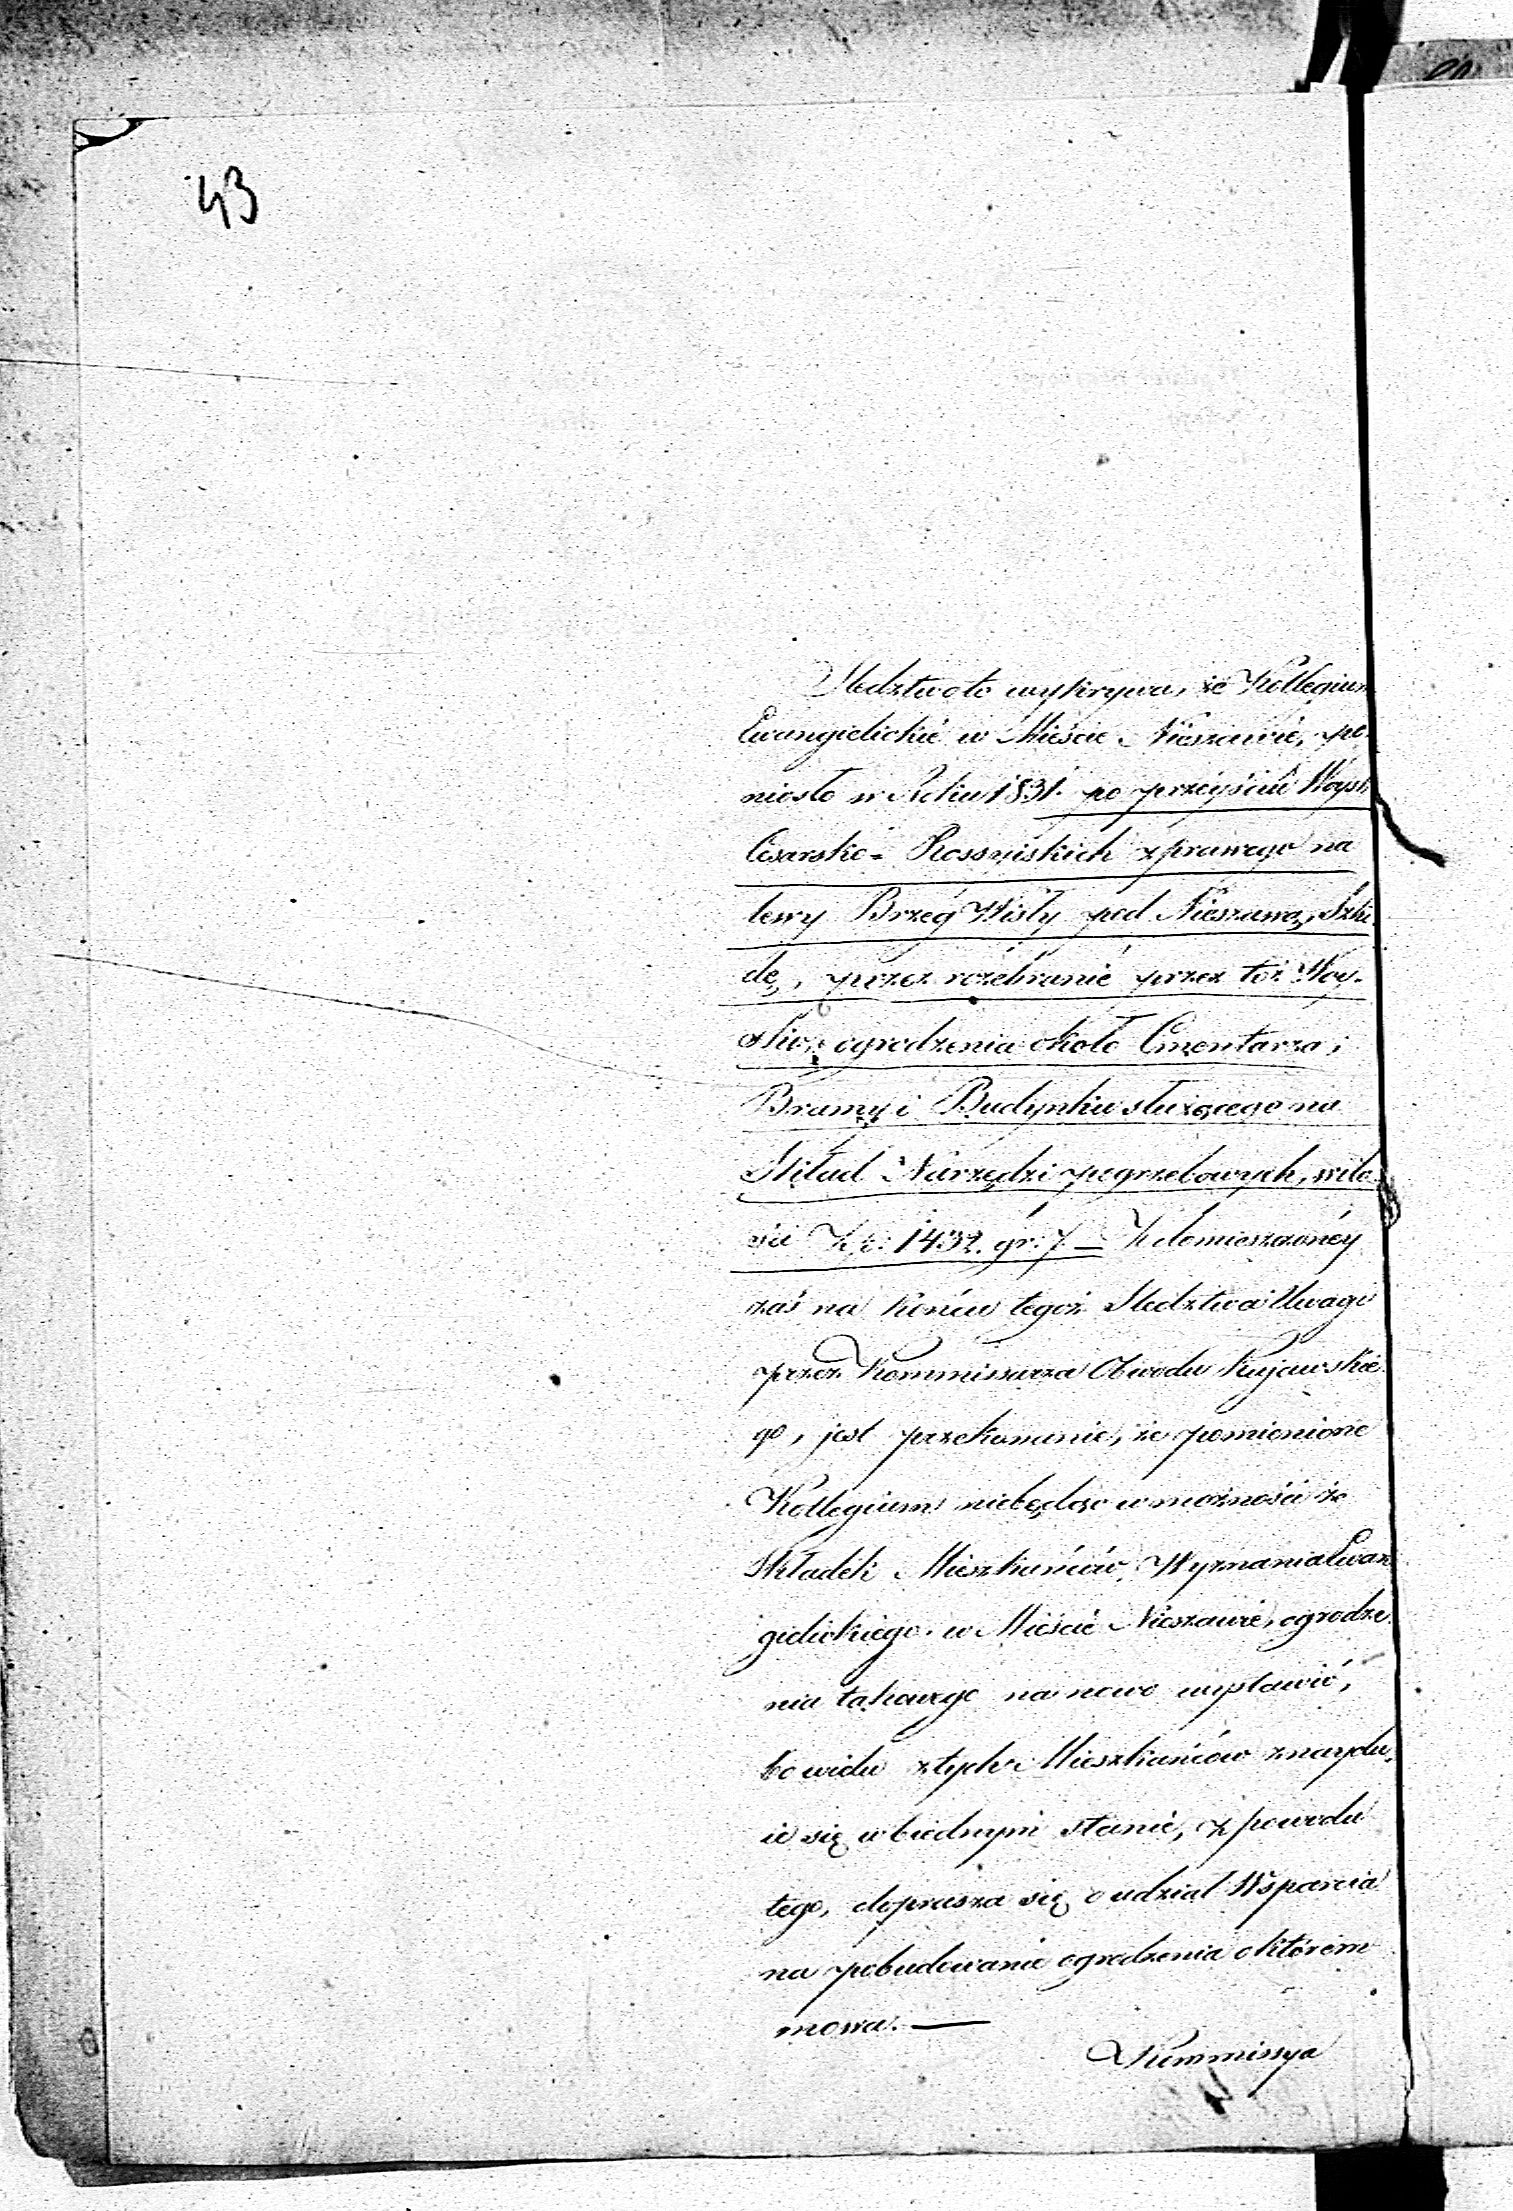 43
Sledztwo to wykrywa, że Kollegium
Ewangielickié w Mieście Nieszawie, po-
niosło w Roku 1831. po przeyściu Woysk
Cesarsko-Rossyiskich z prawego na
lewy Brzeg Wisły pod Nieszawą, Szko-
dę, przez rozebranié przez toż Woy-
sko, ogrodzenia około Cmentarza,
Bramy i Budynku służącego na
Skład Narzędzi pogrzebowych, w ilo-
ści Zł: 1432. gr: 7. — Z domieszczonéy
zaś na końcu tegoż Sledztwa Uwagi
przez Kommissarza Obwodu Kujawskie-
go, jest przekonanie, że pomienione
Kollegium niebędąc w możności ze
Składek Mieszkańców Wyznania Ewan-
gielickiego w Mieście Nieszawie, ogrodze-
nia takowego na nowo wystawić,
bo wielu z tych Mieszkańców znaydu-
ie się w biednym stanie, z powodu
tego, doprasza się o udział Wsparcia
na pobudowanie ogrodzenia o którém
mowa. —
Kommissya